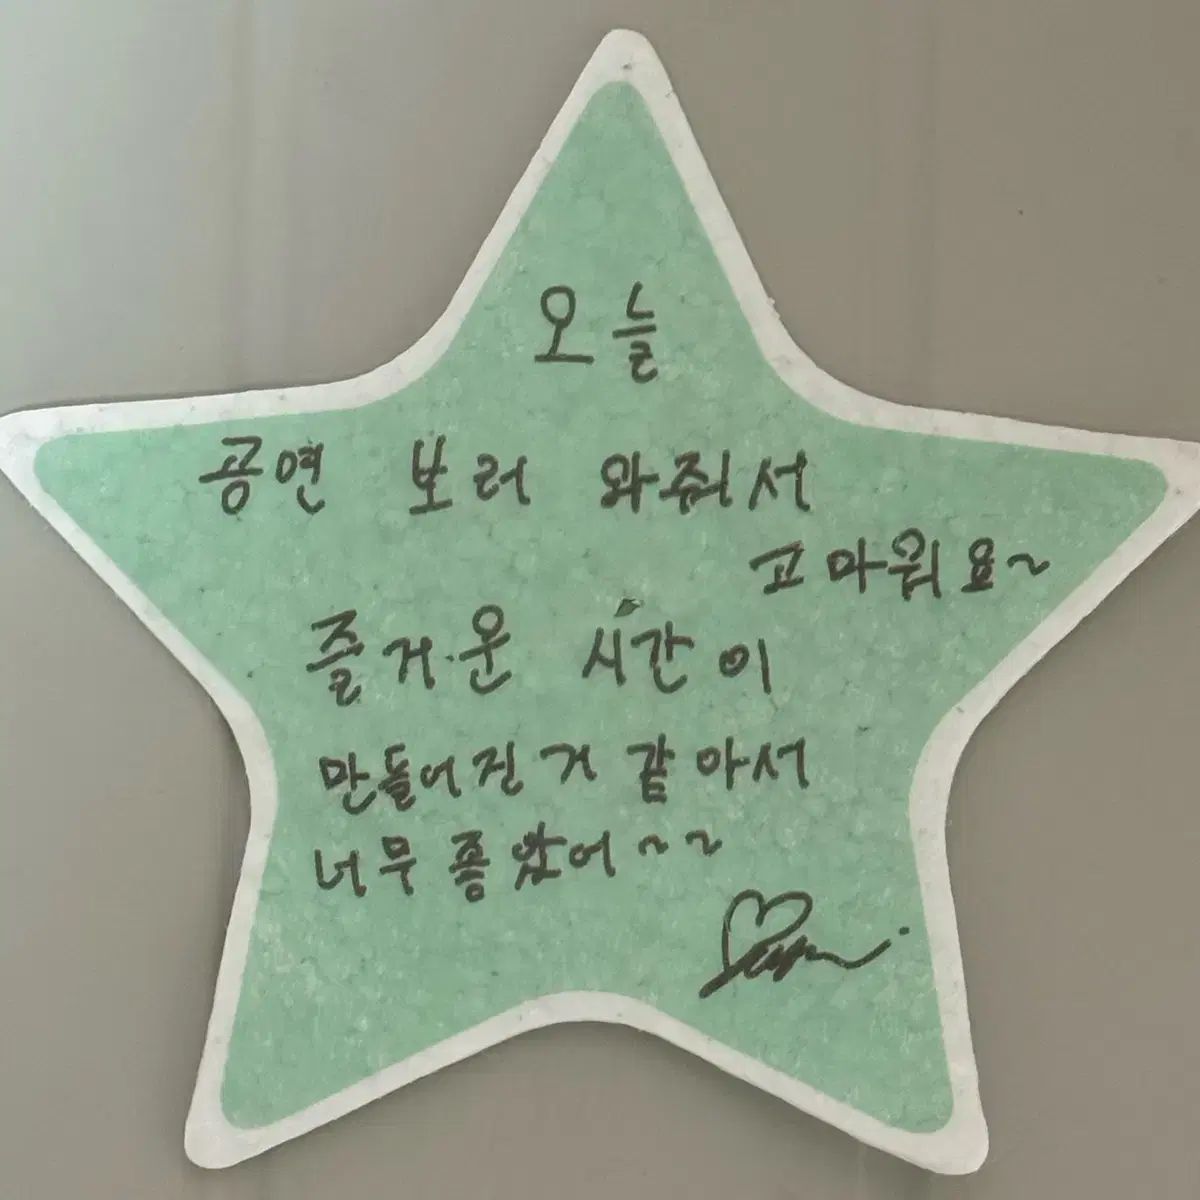 오늘
공연 보러 와줘서
고마워요~
즐거운 시간이
만들어진 거 같아서
너무 좋았어~~